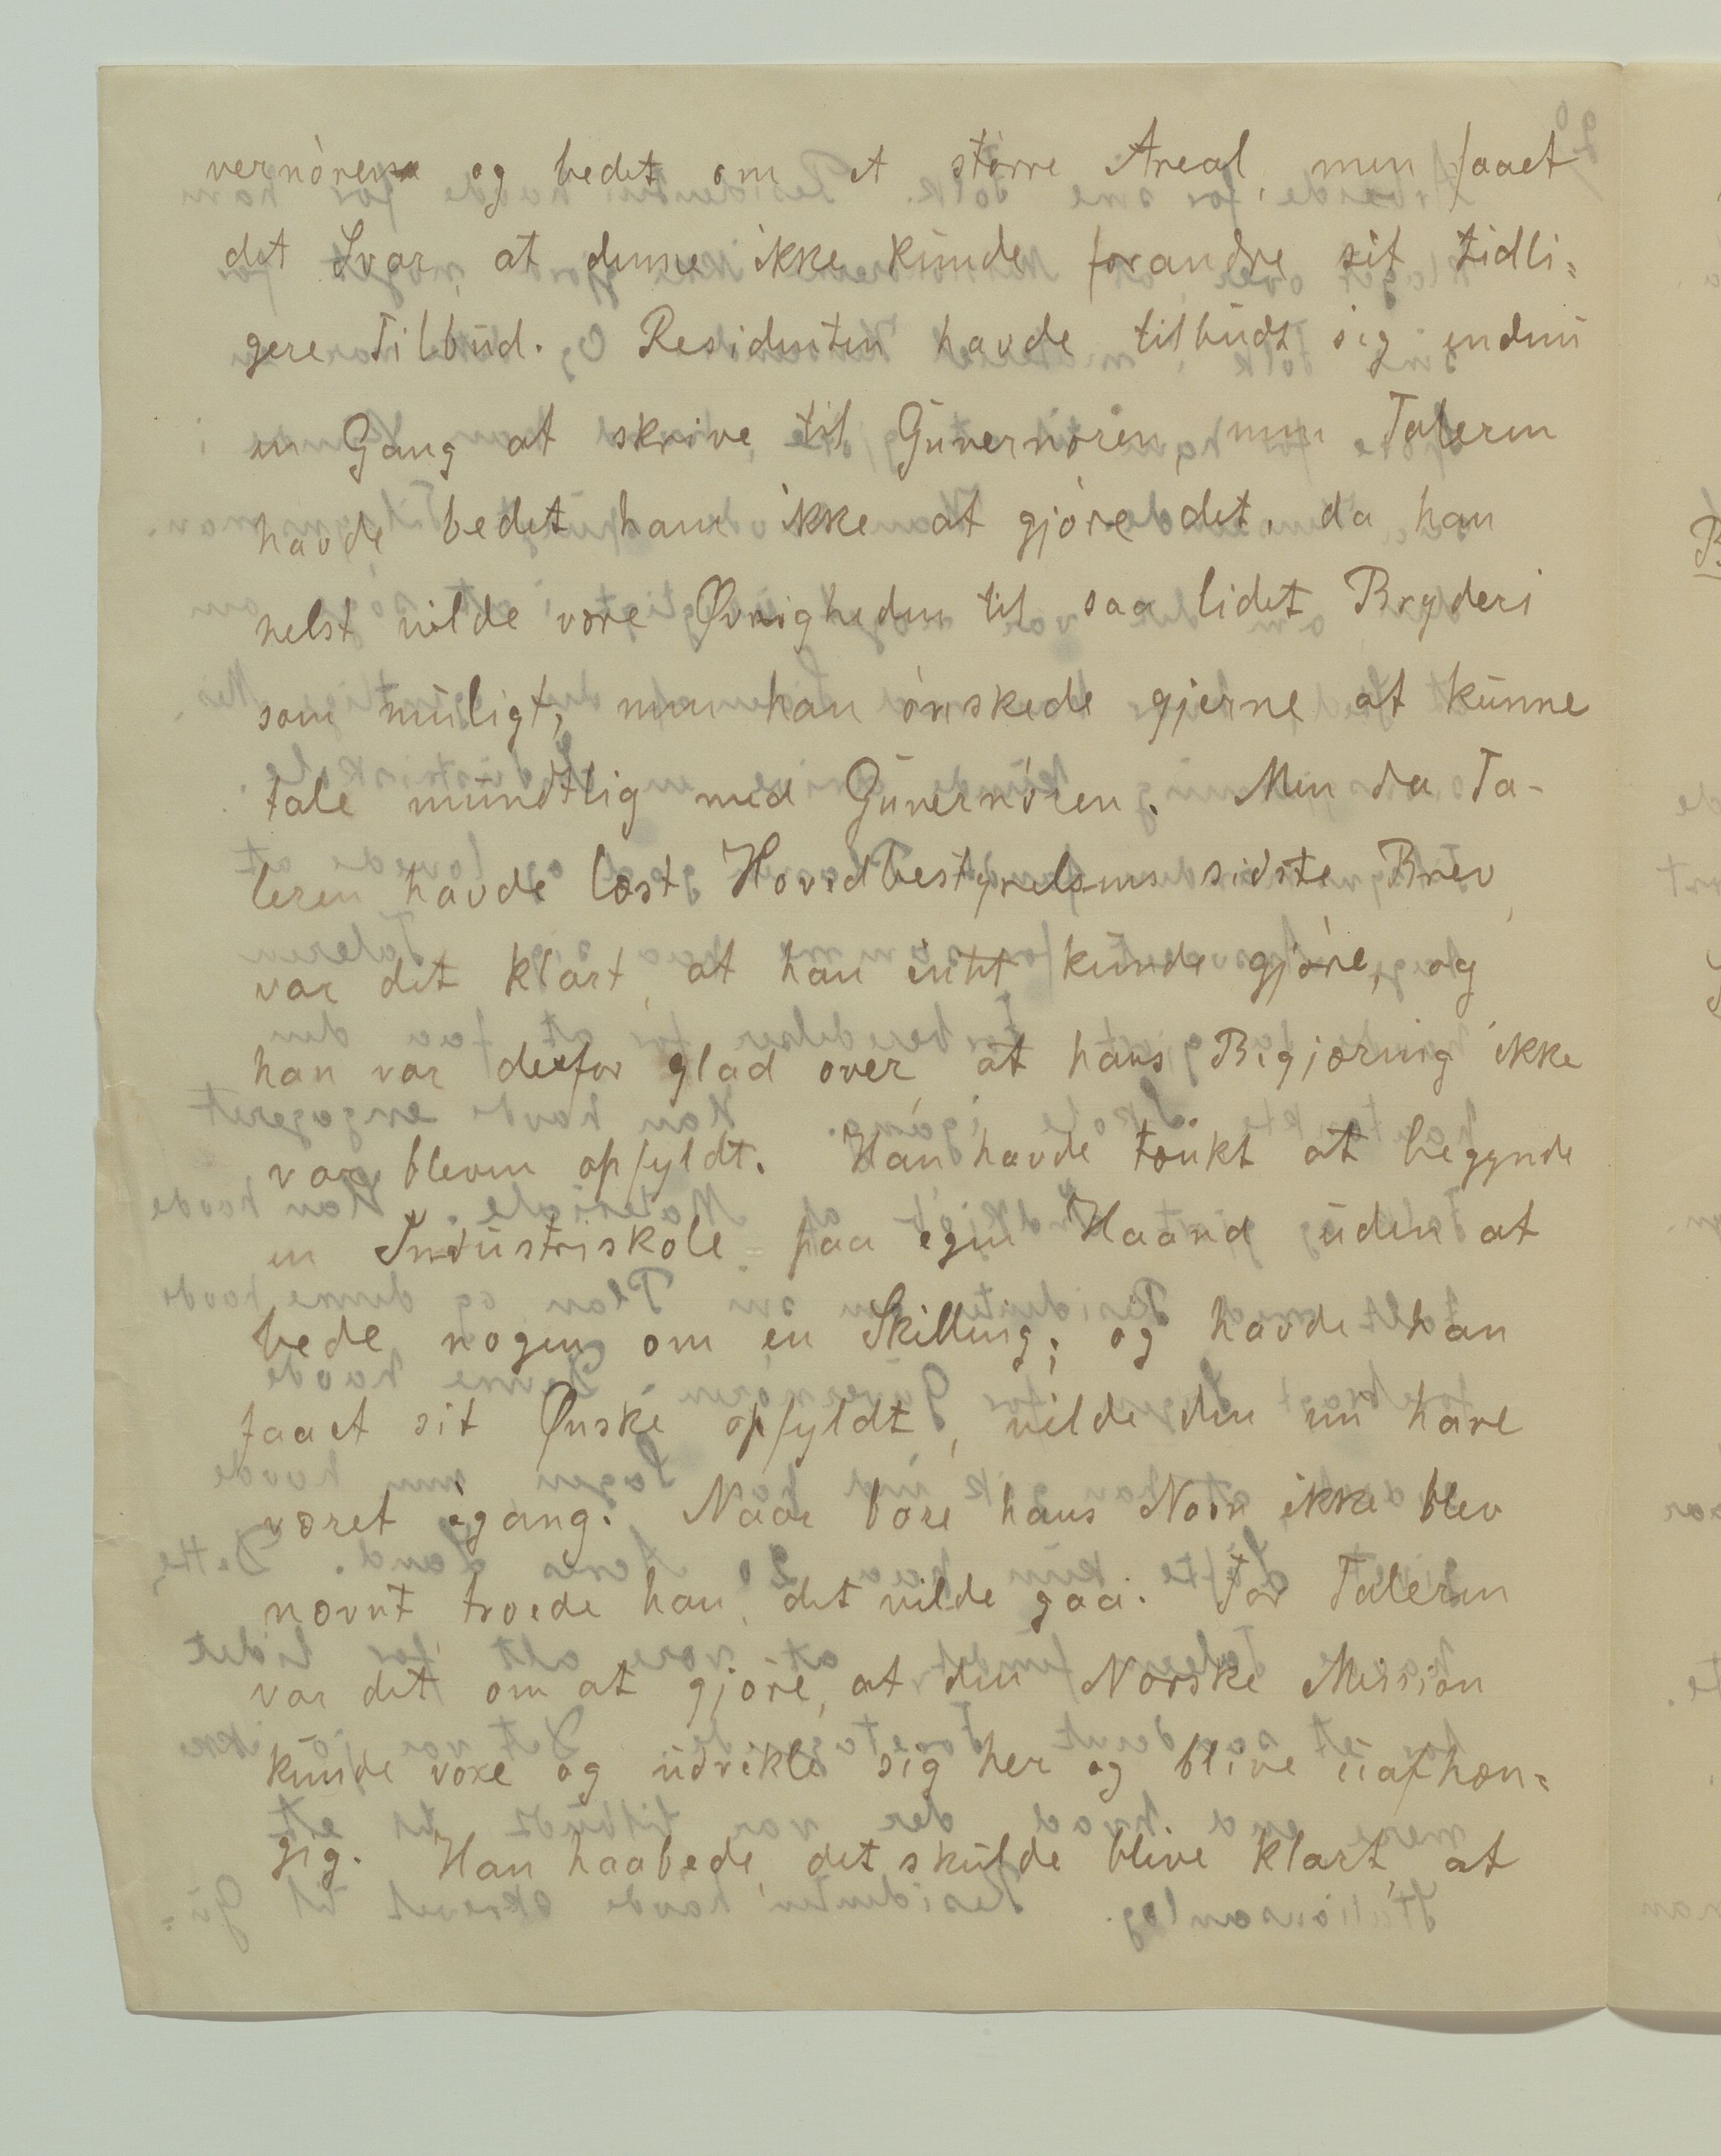 vernören og bedet om et större Areal, men faaet
det Svar, at denne ikke kunde forandre sit tidli=
gere Tilbud. Residenten havde tilbudt sig endnu
en Gang at skrive til Guvernören, men Taleren
havde bedet ham ikke at gjöre det, da han
helst vilde være Øvrigheden til saa lidet Bryderi
som muligt, men han önskede gjerne at kunne
tale mundtlig med Guvernören. Men da Ta-
leren havde læst Hovedbestyrelsens sidste Brev,
var det klart, at han intet kunde gjöre, og
han var derfor glad over at hans Begjæring ikke
var bleven opfyldt. Han havde tænkt at begynde
en Industriskole paa egen Haand uden at
bede nogen om en Skilling; og havde han
faaet sit Ønske opfyldt, vilde den nu have
været igang. Naar bare hans Navn ikke blev
nævnt troede han, det vilde gaa. For Taleren
var det om at gjöre, at den Norske Mission
kunde voxe og udvikle sig her og blive uafhæn=
gig. Han haabede det skulde blive klart, at